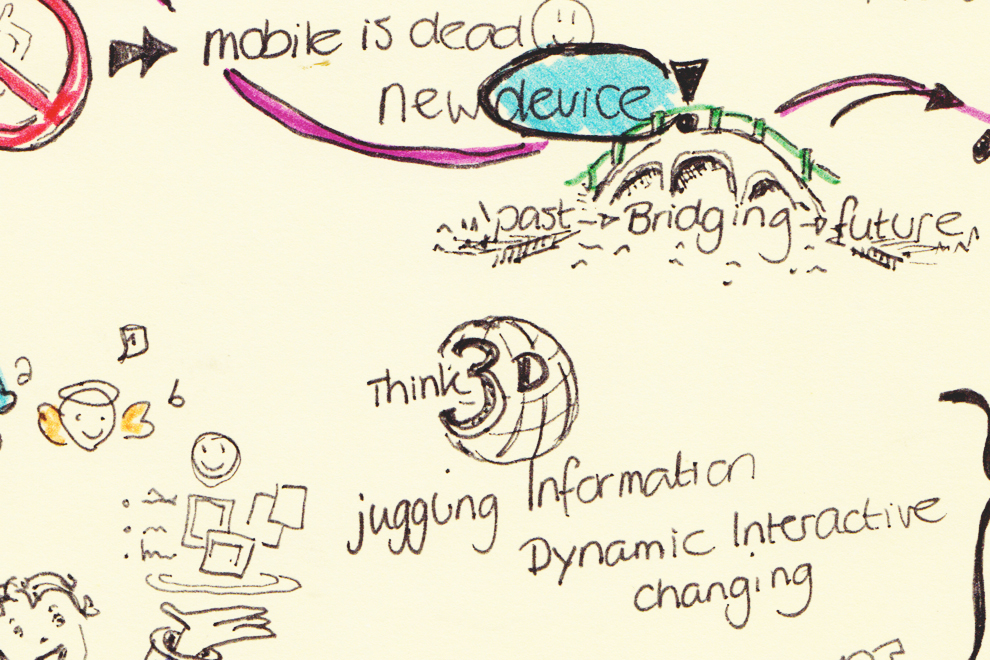 mobile is dead
new device
past → Bridging → future
a
b
Think 3D
juggling Information
Dynamic Interactive
changing